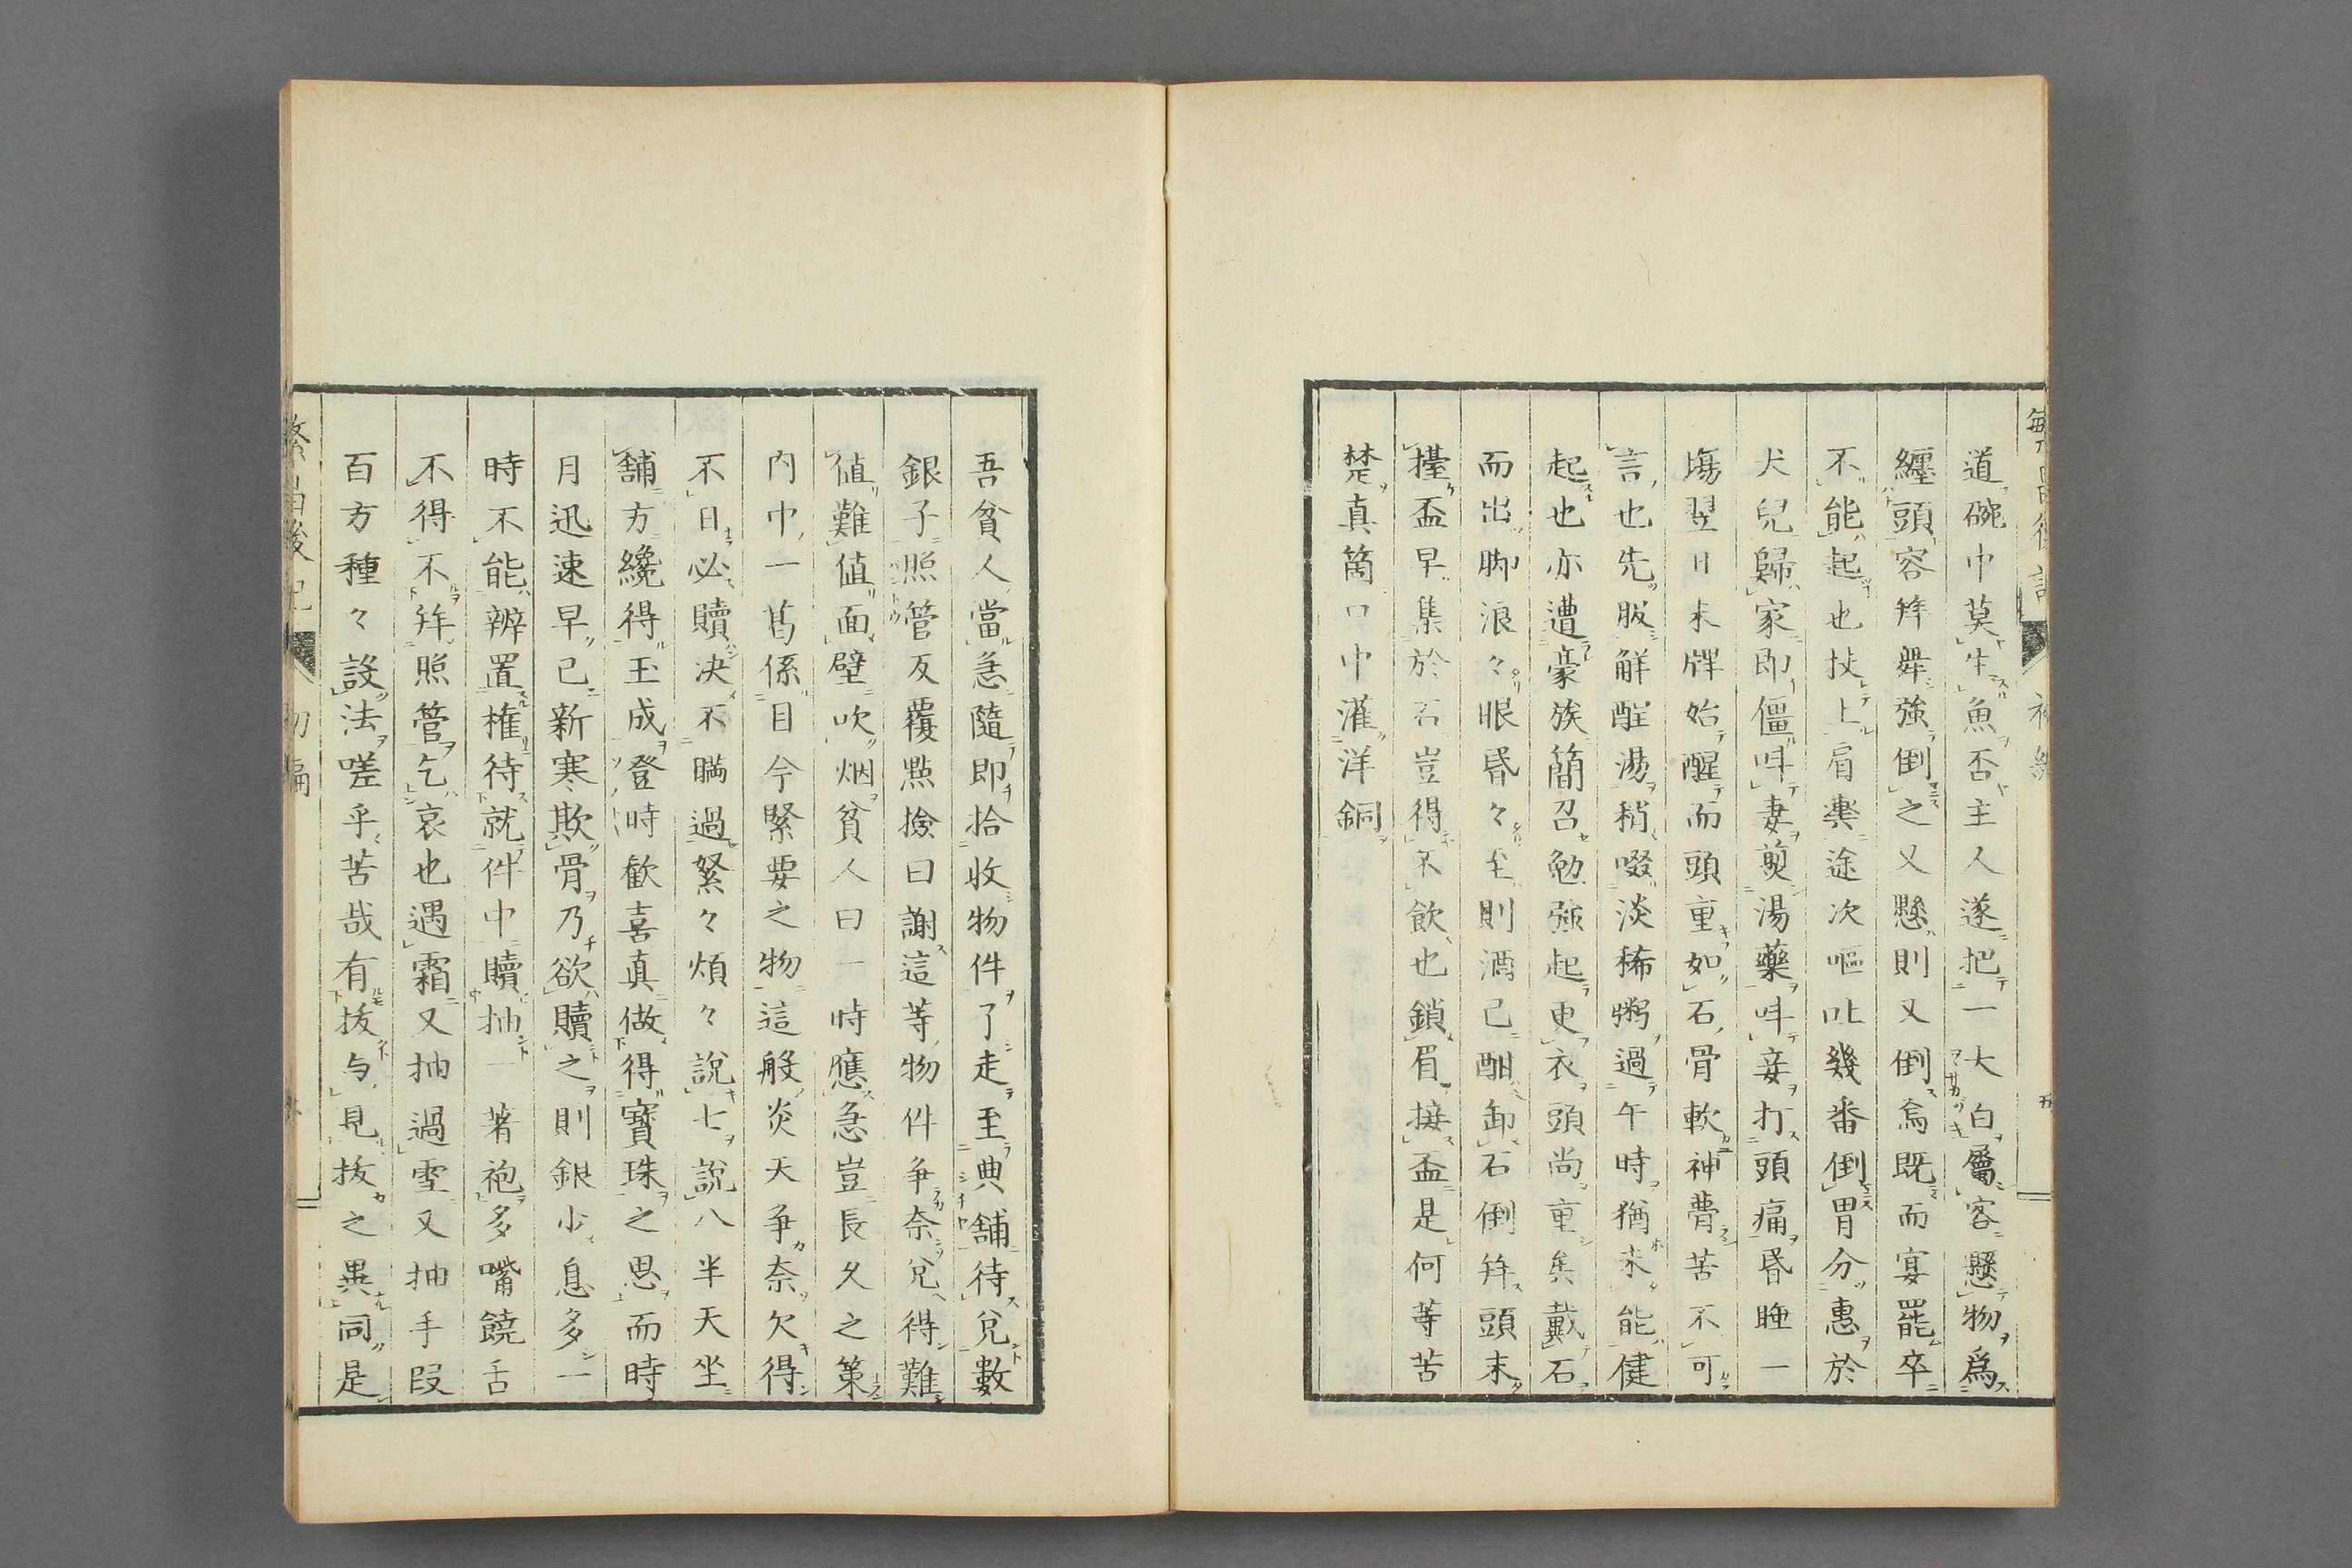 道碗中莫生魚否主人遂把一大白屬客懸物爲
纏頭容拜舉強倒之又懸則又倒焉既而宴罷卒
不能起也扶上肩輿途次嘔吐幾番倒胃分惠於
犬兒歸家即僵呼妻煎湯藥呼妾打頭痛昏睡一
塲翌日未牌始醒而頭重如石骨軟神瞢苦不可
言也先服解酲湯稍啜淡稀粥過午時猶未能健
起也亦遭豪族簡召勉強起更衣頭尚重矣戴石
而出脚浪々眼昏々至則酒已酣卸石倒拜頭未
擡盃早集於右豈得不飲也鎖眉接盃是何等苦
楚真箇口中灌洋銅
吾貧人當急隨即拾收物件了走至典舗待兌數
銀子照管反覆點撿曰謝這等物件爭奈兌得難
値難値面壁吹烟貧人曰一時應急豈長久之策
内中一舊係目今緊要之物這般炎天爭奈欠得
不日必贖決不瞞過緊々煩々說七說八半天坐
舗方纔得玉成登時歓喜真做得寶珠之思而時
月迅速早已新寒欺骨乃欲贖之則銀少息多一
時不能辨置推待就件中贖抽一著袍多嘴饒舌
不得不拜照管乞哀也遇霜又抽過雪又抽手段
百方種々設法嗟乎苦哉有抜与見抜之異同是